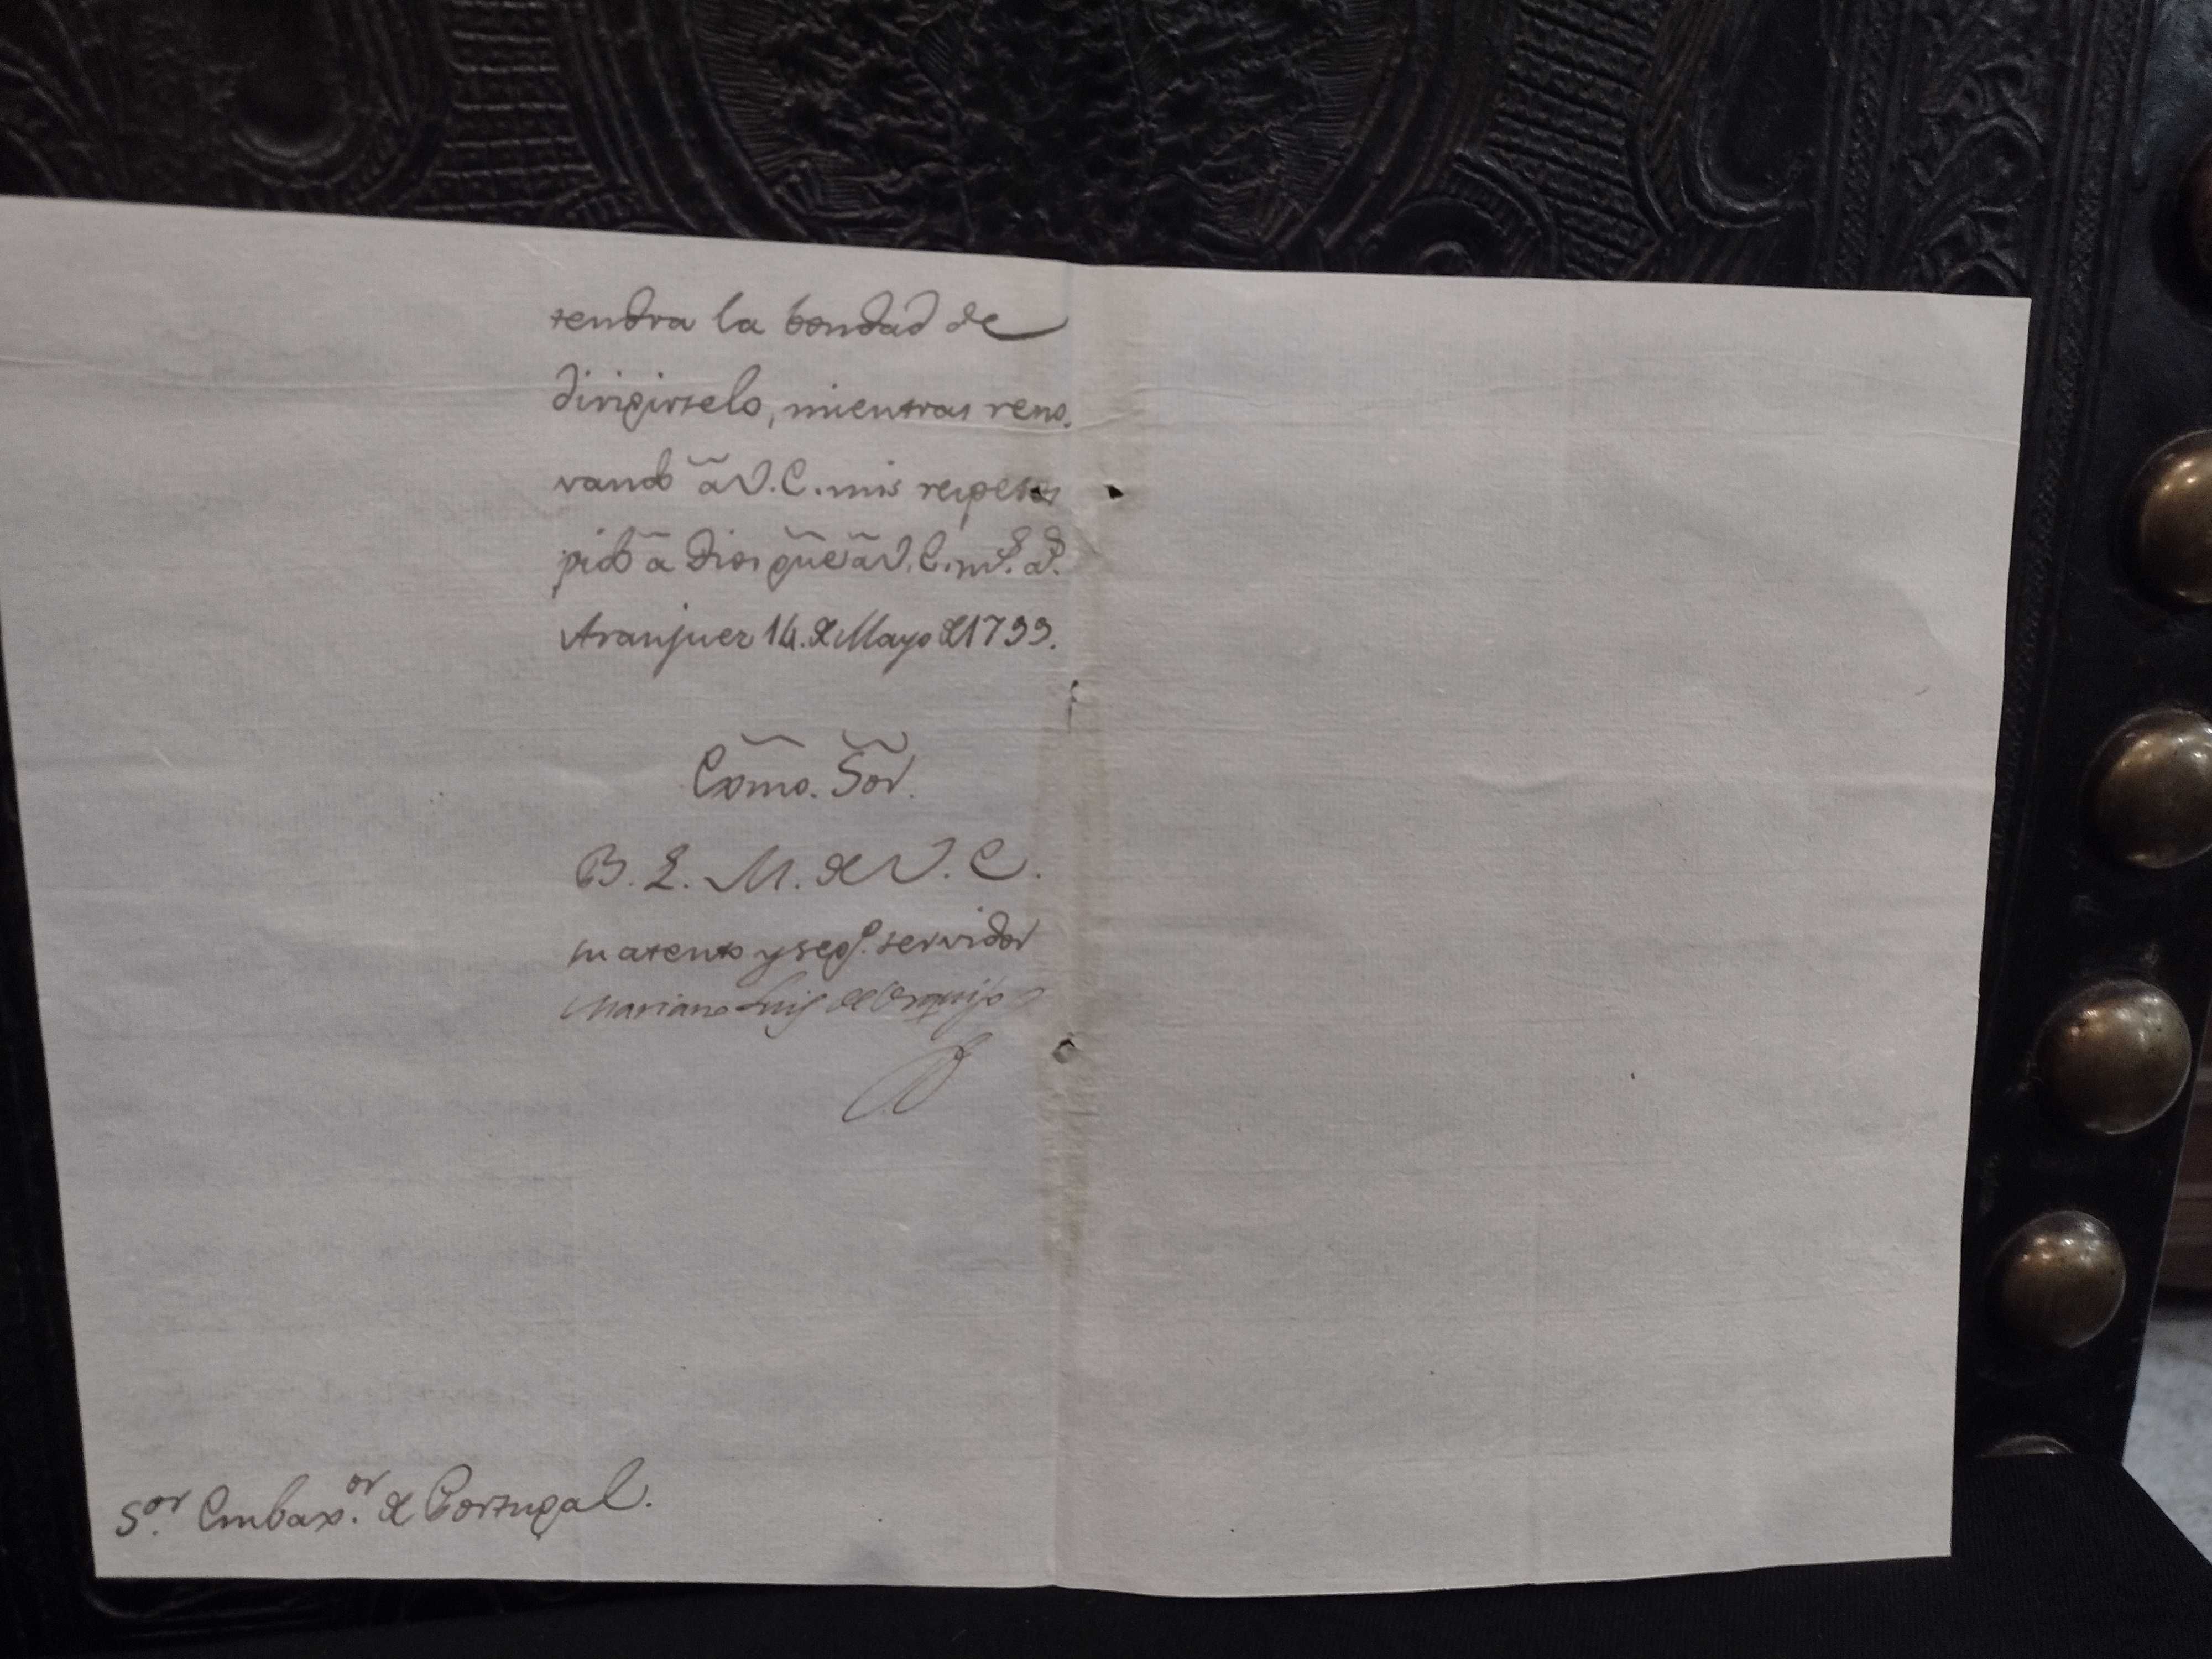 tendra la bondad de
dirigirselo, mientras reno-
vando à V.E. mis respetos
pido à Dios gue à V.E. m.s a.s
Aranjuez 14. de Mayo de 1799.
Exmo. Sor.
B. L. M. de V. E.
su atento y seg.o servidor
Mariano Luis de Urquijo
S.or Embax.or de Portugal.